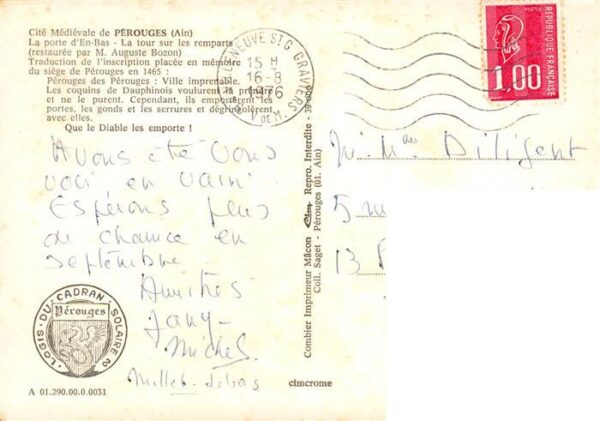 Cité Médiévale de PÉROUGES (Ain)
La porte d'En-Bas - La tour sur les remparts
(restaurée par M. Auguste Bozon)
Traduction de l'inscription placée en mémoire
du siège de Pérouges en 1465 :
Pérouges des Pérouges : Ville imprenable.
Les coquins de Dauphinois voulurent la prendre
et ne le purent. Cependant, ils emportèrent les
portes, les gonds et les serrures et dégringolèrent
avec elles.
Que le Diable les emporte !
Avons été vous
voir en vain
Espérons plus
de chance en
septembre
Amitiés
Jany
Michel
LOGIS DU CADRAN SOLAIRE
Pérouges
A 01.290.00.0.0031
cimcrome
Combier Imprimeur Mâcon Cim Repro. Interdite
Coll. Saget - Pérouges (01. Ain)
VILLENEUVE ST G GRAVIERS
15 H
16-8
1976
VAL DE M.
POSTES
RÉPUBLIQUE FRANÇAISE
1,00
Diligent
5
13